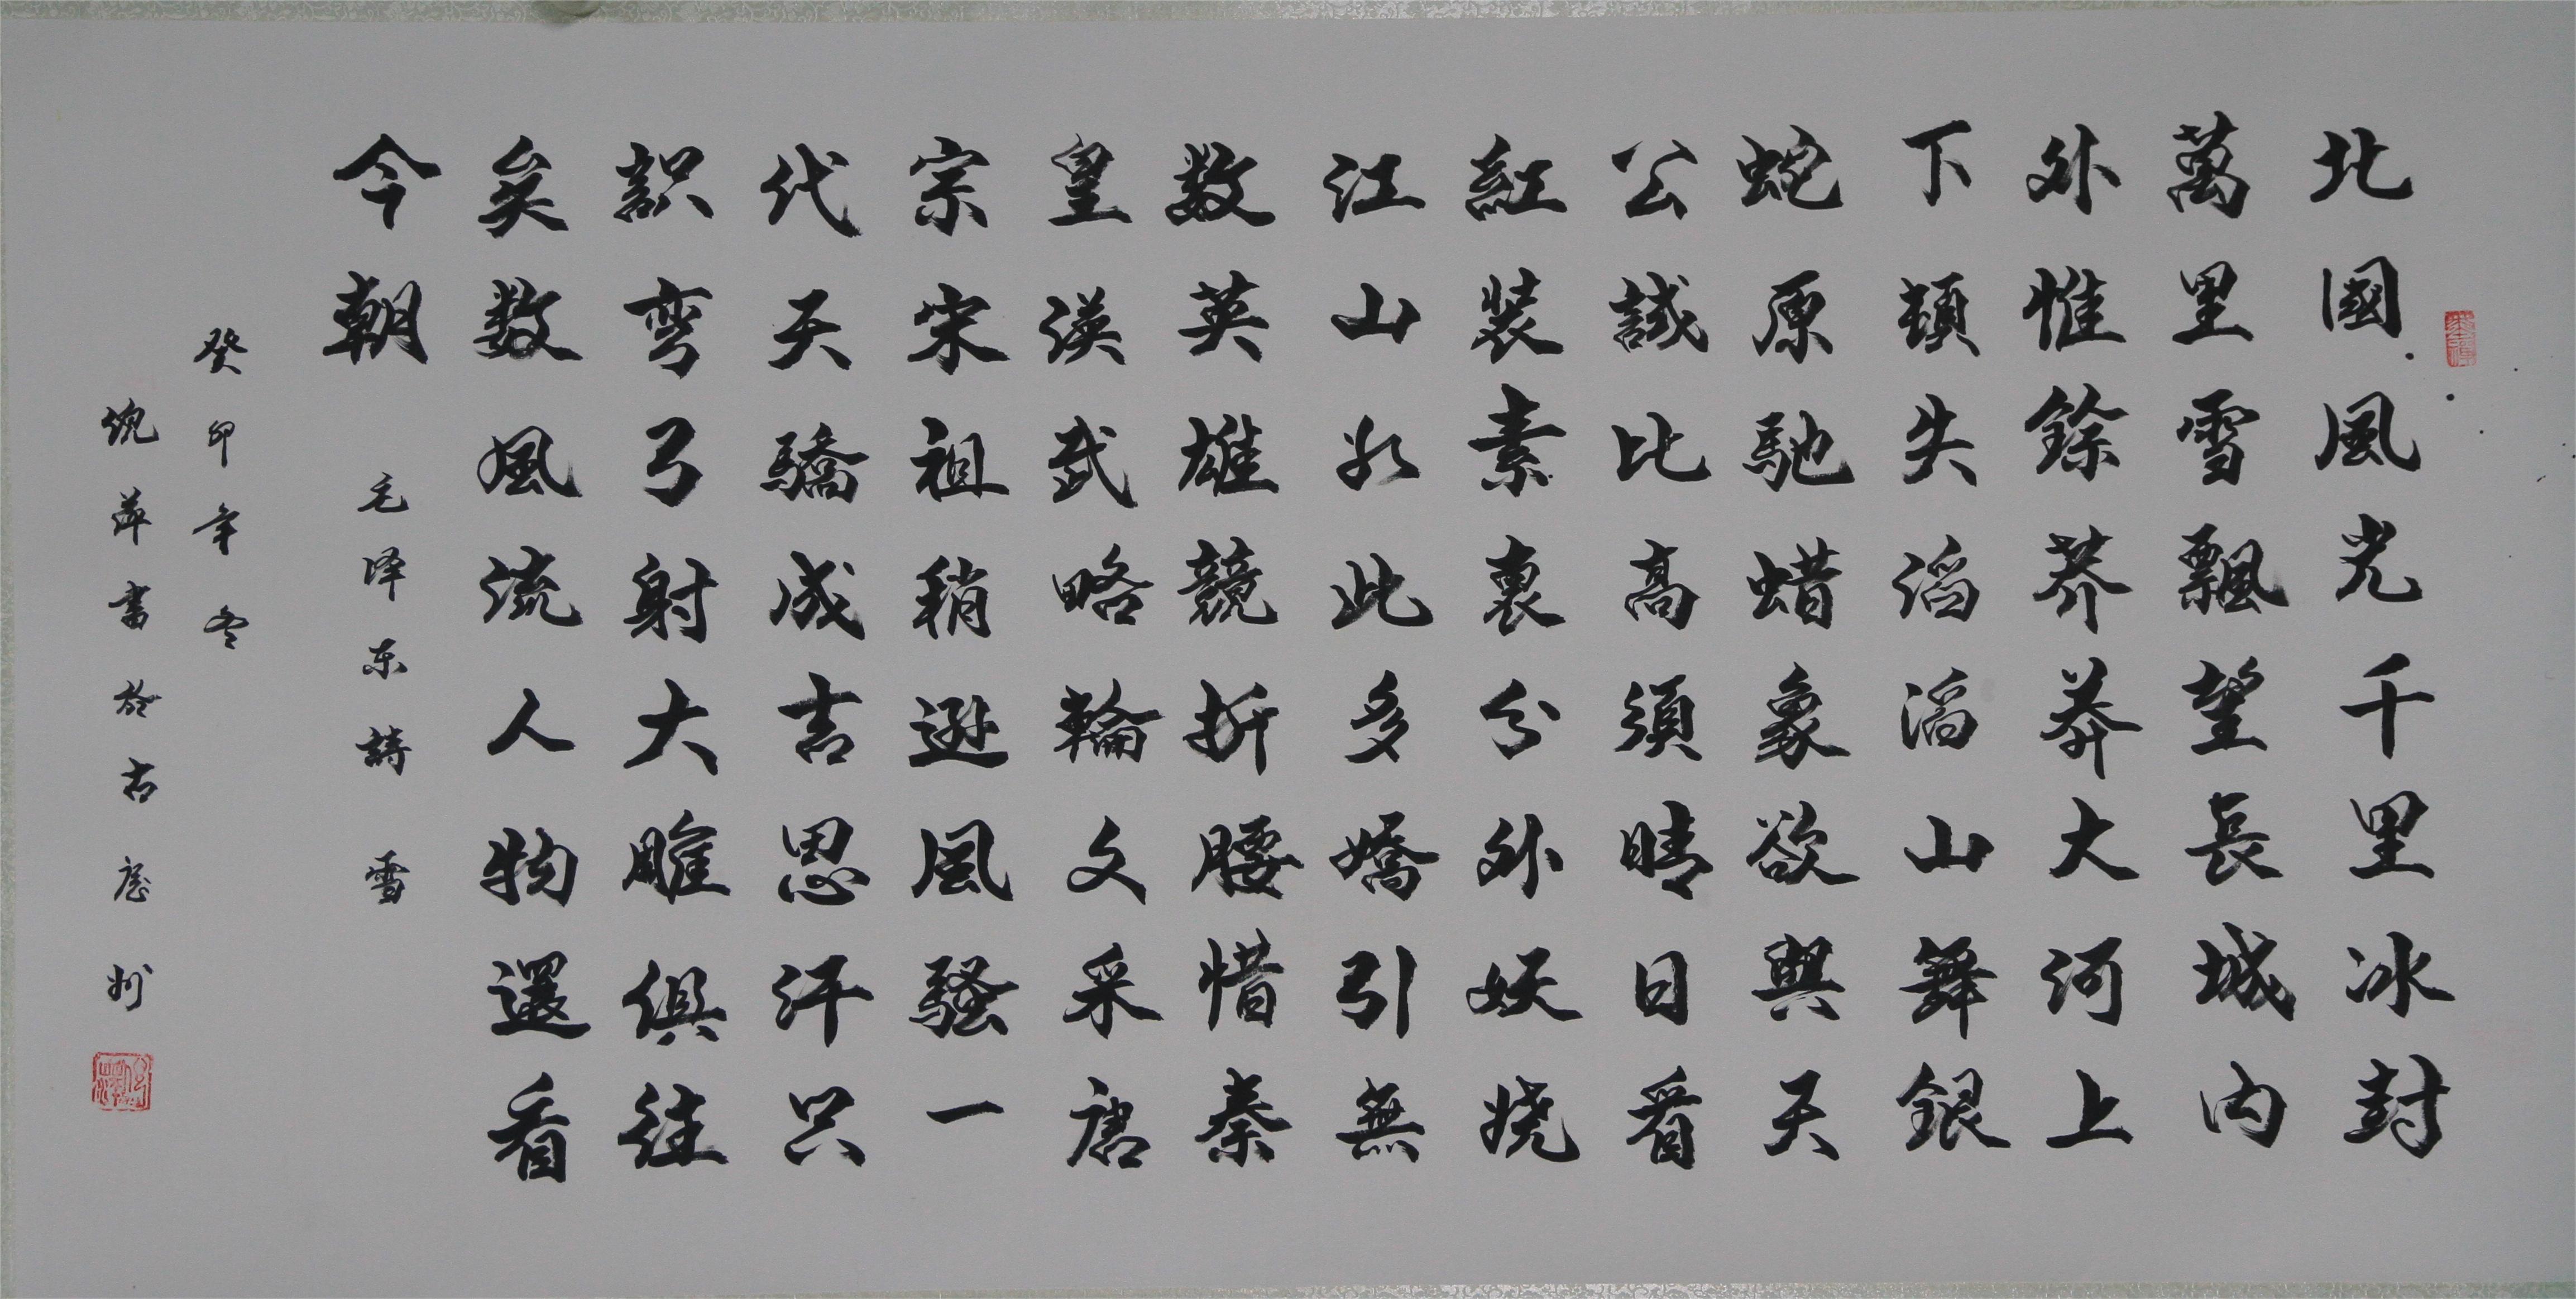 北國風光千里冰封
萬里雪飄望長城內
外惟餘莽莽大河上
下頓失滔滔山舞銀
蛇原馳蜡象欲與天
公試比高須晴日看
紅裝素裹分外妖娆
江山如此多嬌引無
数英雄競折腰惜秦
皇漢武略輸文采唐
宗宋祖稍遜風騷一
代天驕成吉思汗只
識弯弓射大雕俱往
矣数風流人物還看
今朝
毛泽东詩 雪
癸卯年冬
倪萍書於古州